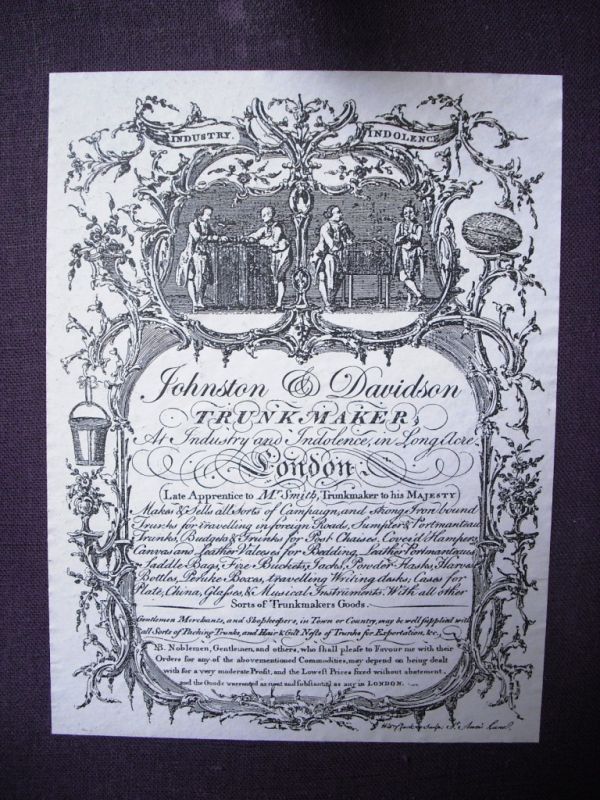 INDUSTRY.
INDOLENCE
Johnston & Davidson
TRUNK MAKER,
At Industry and Indolence, in Long Acre.
London
Late Apprentice to Mr. Smith, Trunkmaker to his MAJESTY
Makes & Sells all Sorts of Campaign, and Strong Iron bound
Trunks for travelling in foreign Roads, Sumpter & Portmanteau
Trunks, Budgets & Trunks for Post Chaises, Cover'd Hampers
Canvas and Leather Valeeses for Bedding, Leather Portmanteaus
Saddle Bags, Fire Buckets, Jacks, Powder Flasks, Harvest
Bottles, Peruke Boxes, travelling Writing desks, Cases for
Plate, China, Glasses, & Musical Instruments, With all other
Sorts of Trunkmakers Goods.
Gentlemen Merchants, and Shopkeepers, in Town or Country, may be well supplied with
all Sorts of Packing Trunks, and Hair & Gilt Nests of Trunks for Exportation, &c.
NB. Noblemen, Gentlemen, and others, who shall please to Favour me with their
Orders for any of the abovementioned Commodities, may depend on being dealt
with for a very moderate Profit, and the Lowest Prices fixed without abatement,
and the Goods warranted as neat and substantial as any in LONDON.